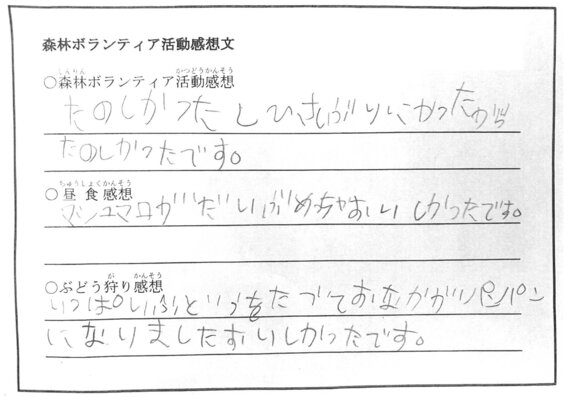 森林ボランティア活動感想文
○森林ボランティア活動感想
たのしかったしひさしがりにかったから
たのしかったです。
○昼食感想
マシュマロがだいぶめちゃおいしかったです。
○ぶどう狩り感想
いっぱいぶどうをたべておなかがパンパン
になりましたおいしかったです。